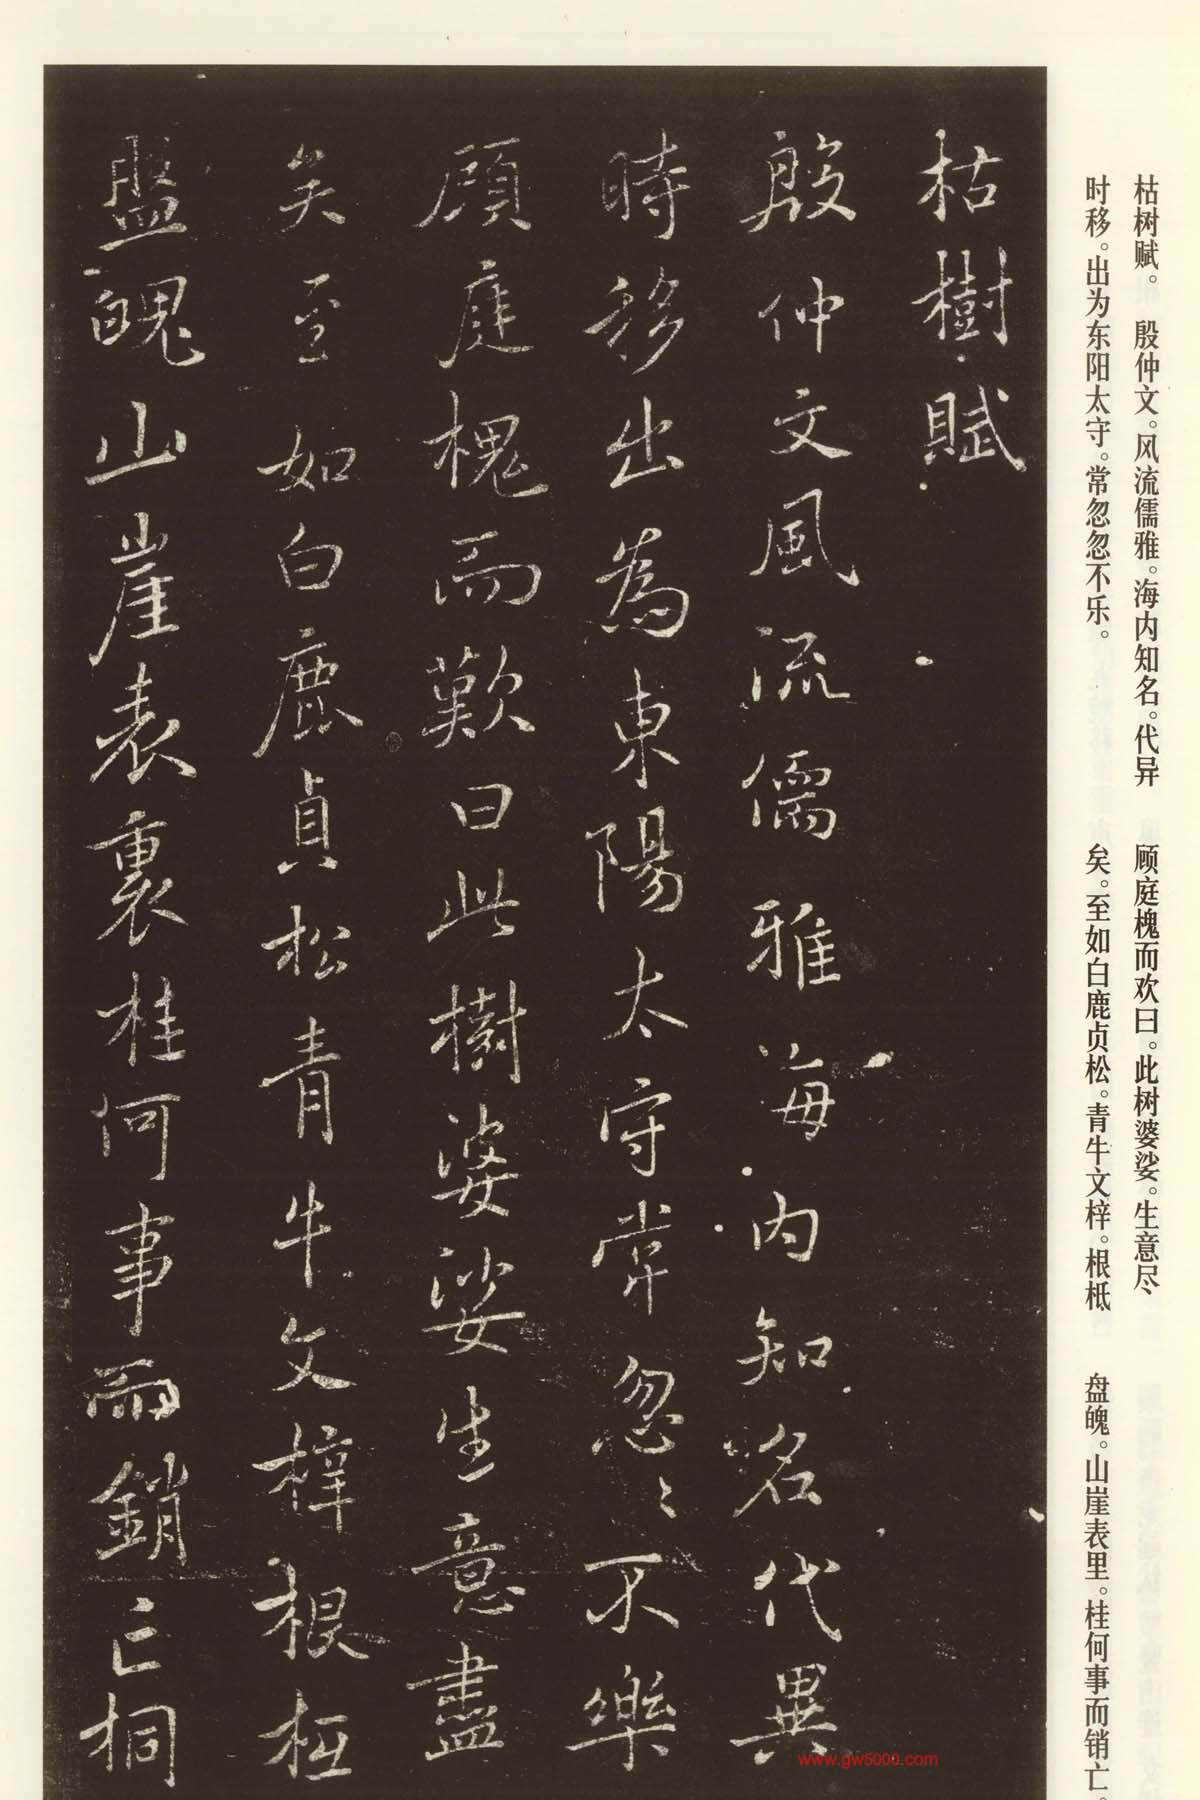 枯树赋。殷仲文。风流儒雅。海内知名。代异
时移。出为东阳太守。常忽忽不乐。
顾庭槐而欢曰。此树婆娑。生意尽
矣。至如白鹿贞松。青牛文梓。根柢
盘魄。山崖表里。桂何事而销亡。
枯樹賦
殷仲文風流儒雅海内知名代異
時移出為東陽太守常忽〻不樂
顧庭槐而歎曰此樹婆娑生意盡
矣至如白鹿貞松青牛文梓根柢
盤魄山崖表裏桂何事而銷亡桐
www.gw5000.com